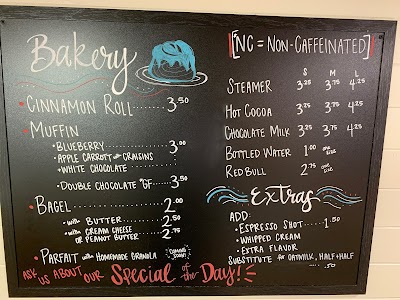 Bakery
• Cinnamon Roll ........ 3.50
• Muffin
• Blueberry ........ 3.00
• Apple Carrot with Craisins
• White Chocolate
• Double Chocolate *GF ... 3.50
• Bagel ........ 2.00
• with Butter ........ 2.50
• with Cream Cheese or Peanut Butter ... 2.75
• Parfait with Homemade Granola
Coming Soon!
Ask us about our Special of the Day!
[NC = Non-Caffeinated]
S M L
Steamer 3.25 3.75 4.25
Hot Cocoa 3.25 3.75 4.25
Chocolate Milk 3.25 3.75 4.25
Bottled Water 1.00 one size
Red Bull 2.75 one size
Extras
Add:
• Espresso Shot .... 1.50
• Whipped Cream
• Extra Flavor
Substitute for Oatmilk, Half+Half
.... .50